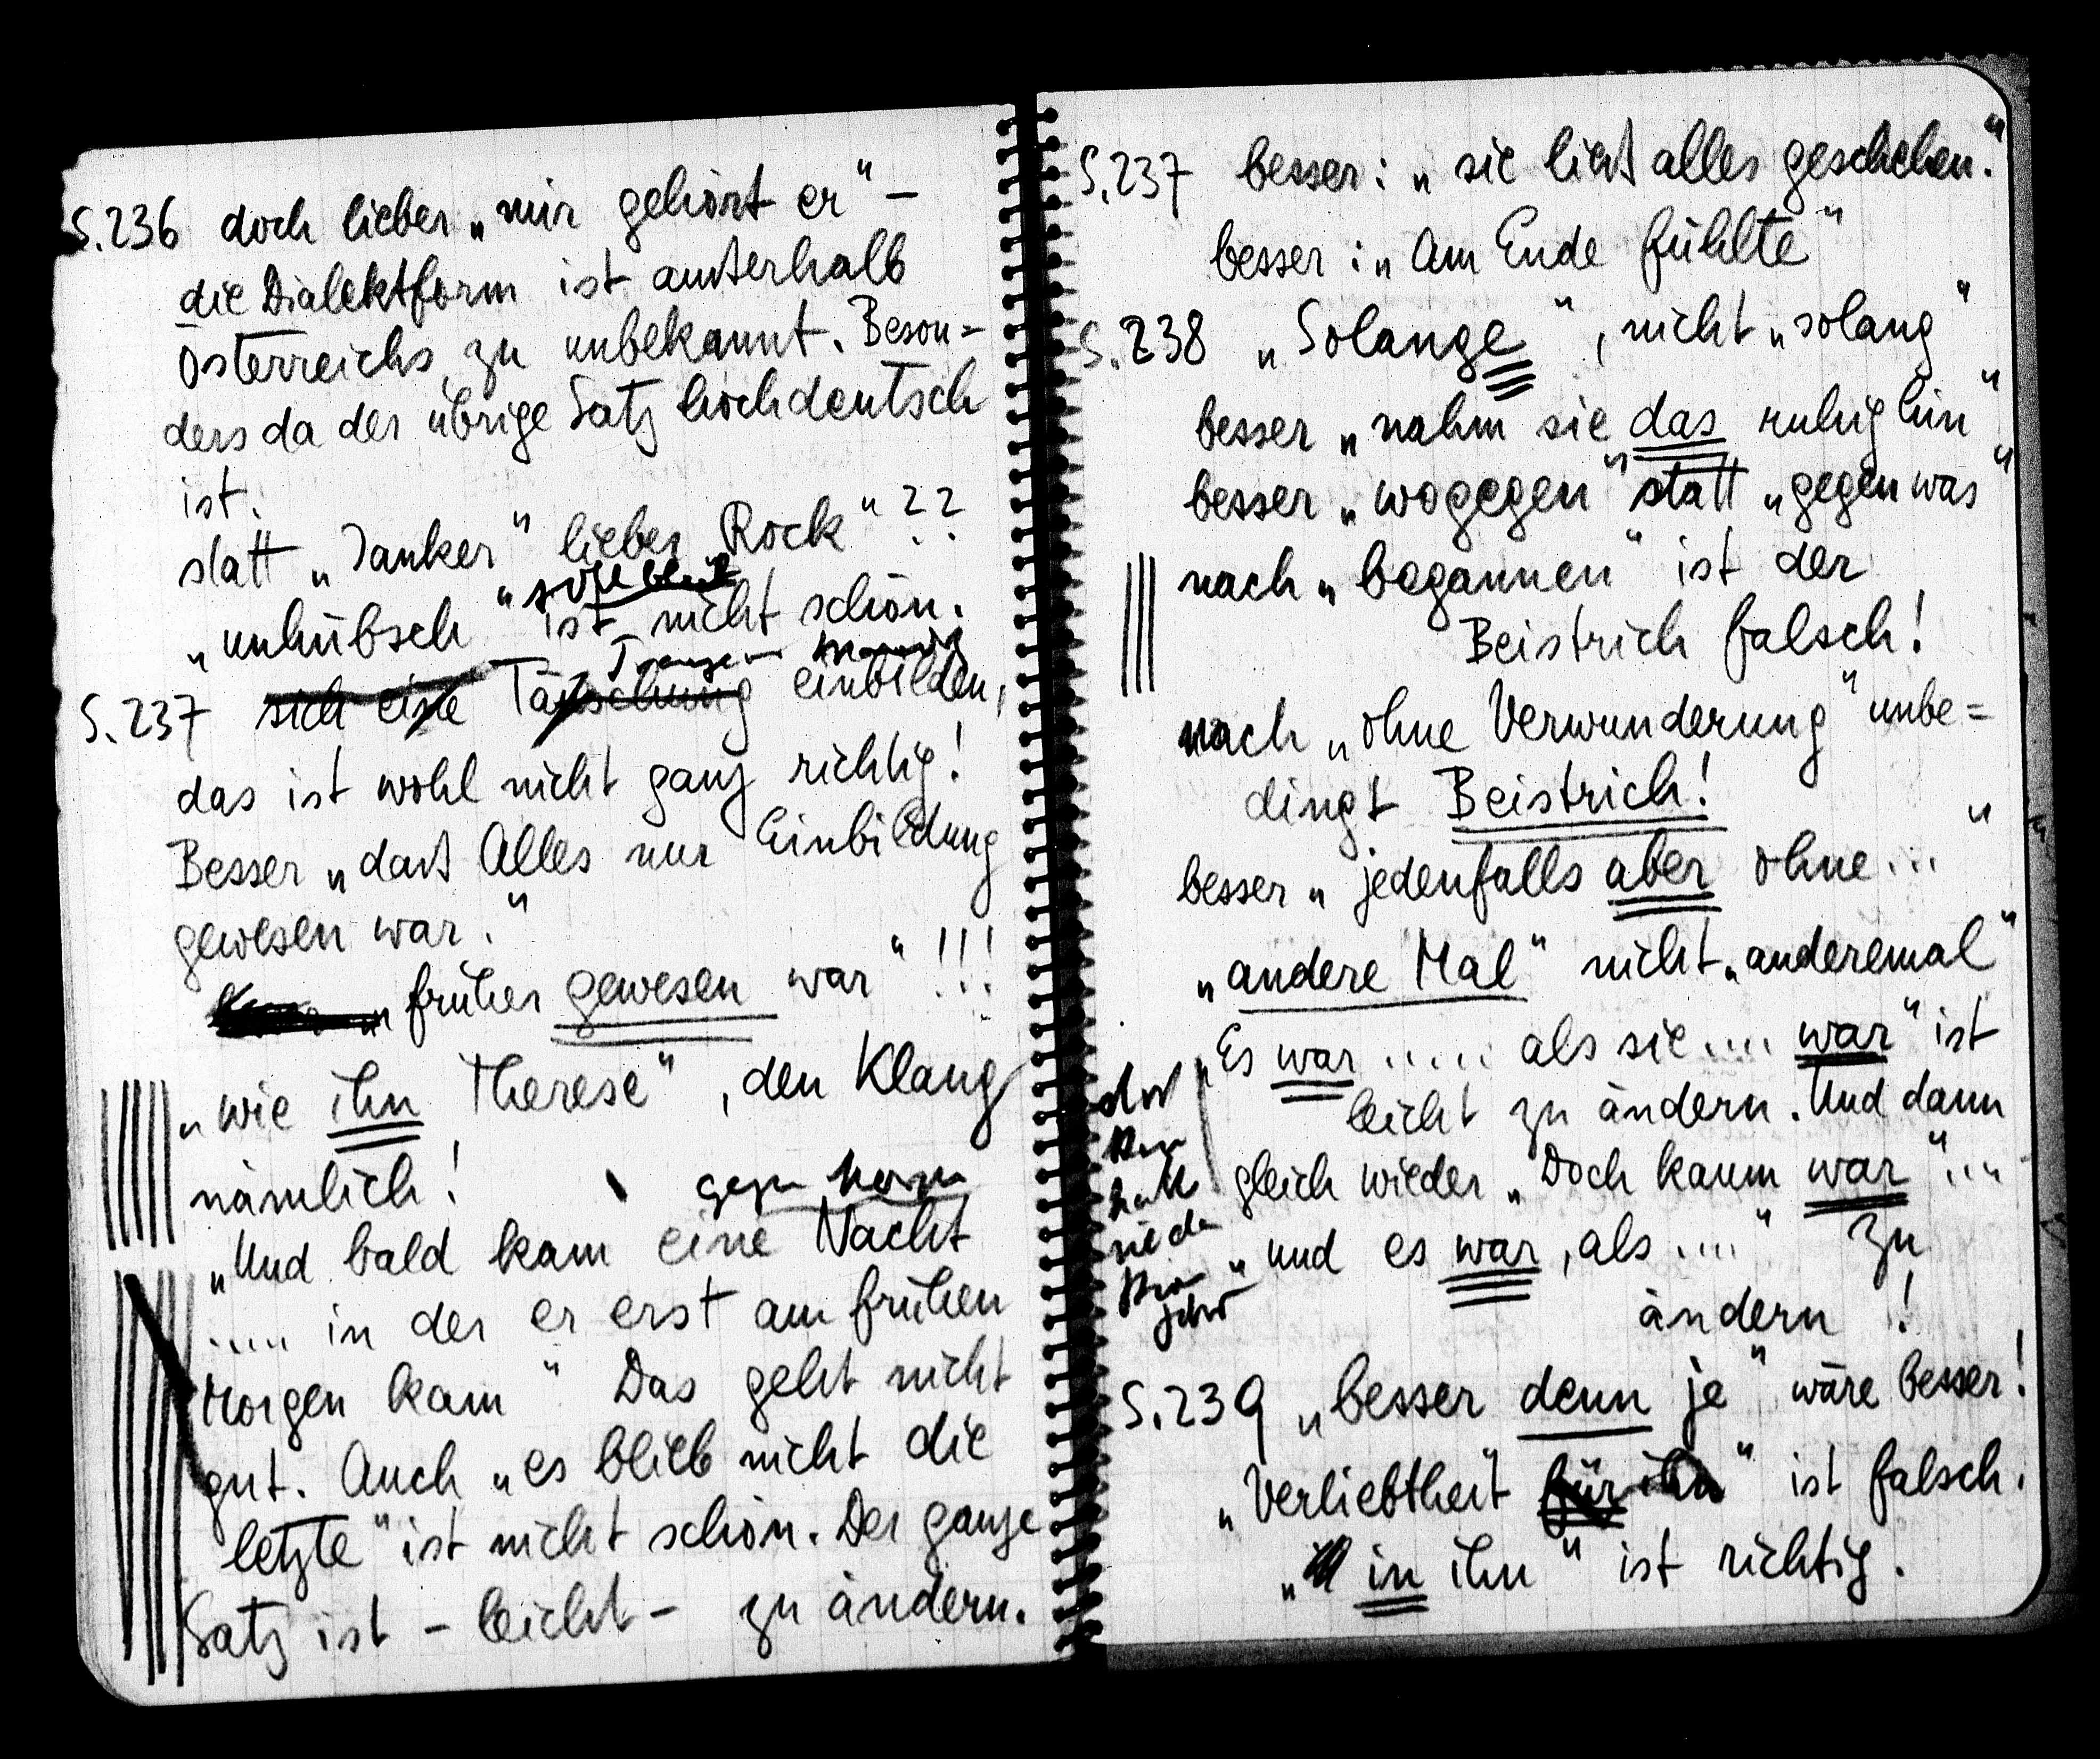 S.236 doch lieber „mir gehört er" –
die Dialektform ist außerhalb
Österreichs zu unbekannt. Beson=
ders da der übrige Satz hochdeutsch
ist.
statt „Janker" lieber „Rock"??
„unhübsch" ist nicht schön.
S.237 sich eine Täuschung einbilden,
das ist wohl nicht ganz richtig!
Besser „daß Alles nur Einbildung
gewesen war."
„früher gewesen war"!!!
„wie ihn Therese", den Klang
nämlich!
gegen
„Und bald kam eine Nacht
..... in der er erst am frühen
Morgen kam" Das geht nicht
gut. Auch „es blieb nicht die
letzte" ist nicht schön. Der ganze
Satz ist – leicht – zu ändern.
S.237 besser: „sie ließ alles geschehen."
besser: „Am Ende fühlte"
S.238 „Solange", nicht „solang"
besser „nahm sie das ruhig hin"
besser „wogegen" statt „gegen was"
nach „begannen" ist der
Beistrich falsch!
nach „ohne Verwunderung" unbe=
dingt Beistrich!
besser „jedenfalls aber ohne..."
„andere Mal" nicht „anderemal"
„Es war ..... als sie .... war" ist
leicht zu ändern. Und dann
gleich wieder „Doch kaum war"...
„und es war, als ...." zu
ändern!
S.239 „besser denn je" wäre besser!
„Verliebtheit für ihn" ist falsch.
„in ihn" ist richtig.